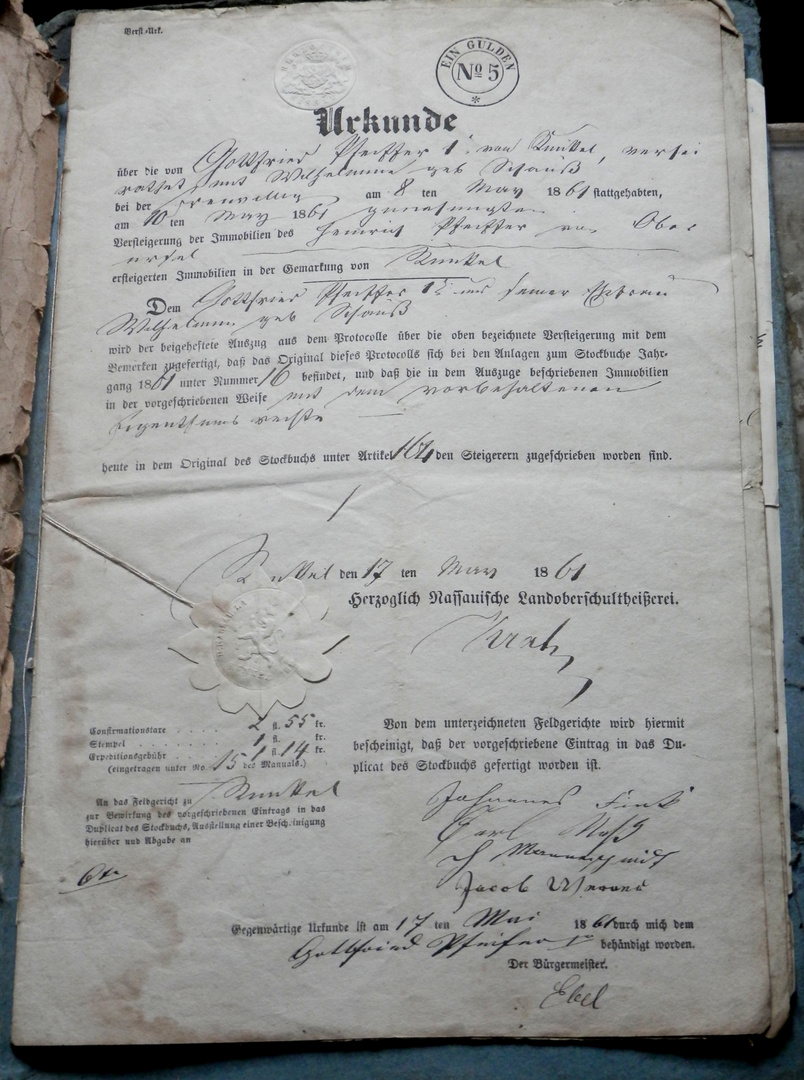 Verst.-Urk.
EIN GULDEN
No 5
Urkunde
über die von Gottfried Pfeiffer 1r von Runkel, verhei
rathet mit Wilhelmine geb Schauß
bei der freiwillig am 8 ten May 1861 stattgehabten,
am 10 ten May 1861 genehmigten
Versteigerung der Immobilien des Heinrich Pfeiffer von Ober
ursel
ersteigerten Immobilien in der Gemarkung von Runkel
Dem Gottfried Pfeiffer 1r und seiner Ehefrau
Wilhelmine geb Schauß
wird der beigeheftete Auszug aus dem Protocolle über die oben bezeichnete Versteigerung mit dem
Bemerken zugefertigt, daß das Original dieses Protocolls sich bei den Anlagen zum Stockbuche Jahr-
gang 1861 unter Nummer 16 befindet, und daß die in dem Auszuge beschriebenen Immobilien
in der vorgeschriebenen Weise mit dem vorbehaltenen
Eigenthumsrechte
heute in dem Original des Stockbuchs unter Artikel 164 den Steigerern zugeschrieben worden sind.
Runkel den 17 ten May 1861
Herzoglich Nassauische Landoberschultheißerei.
Confirmationstaxe . . . . . 2 fl. 55 kr.
Stempel . . . . . . . 1 fl. kr.
Expeditionsgebühr . . . . 1 fl. 14 kr.
(eingetragen unter No. 15 des Manuals.)
Von dem unterzeichneten Feldgerichte wird hiermit
bescheinigt, daß der vorgeschriebene Eintrag in das Du-
plicat des Stockbuchs gefertigt worden ist.
An das Feldgericht zu Runkel
zur Bewirkung des vorgeschriebenen Eintrags in das
Duplicat des Stockbuchs, Ausstellung einer Bescheinigung
hierüber und Abgabe an
Johannes
Carl
Jacob
Gegenwärtige Urkunde ist am 17 ten Mai 1861 durch mich dem
Gottfried Pfeifer 1r behändigt worden.
Der Bürgermeister.
Ebel